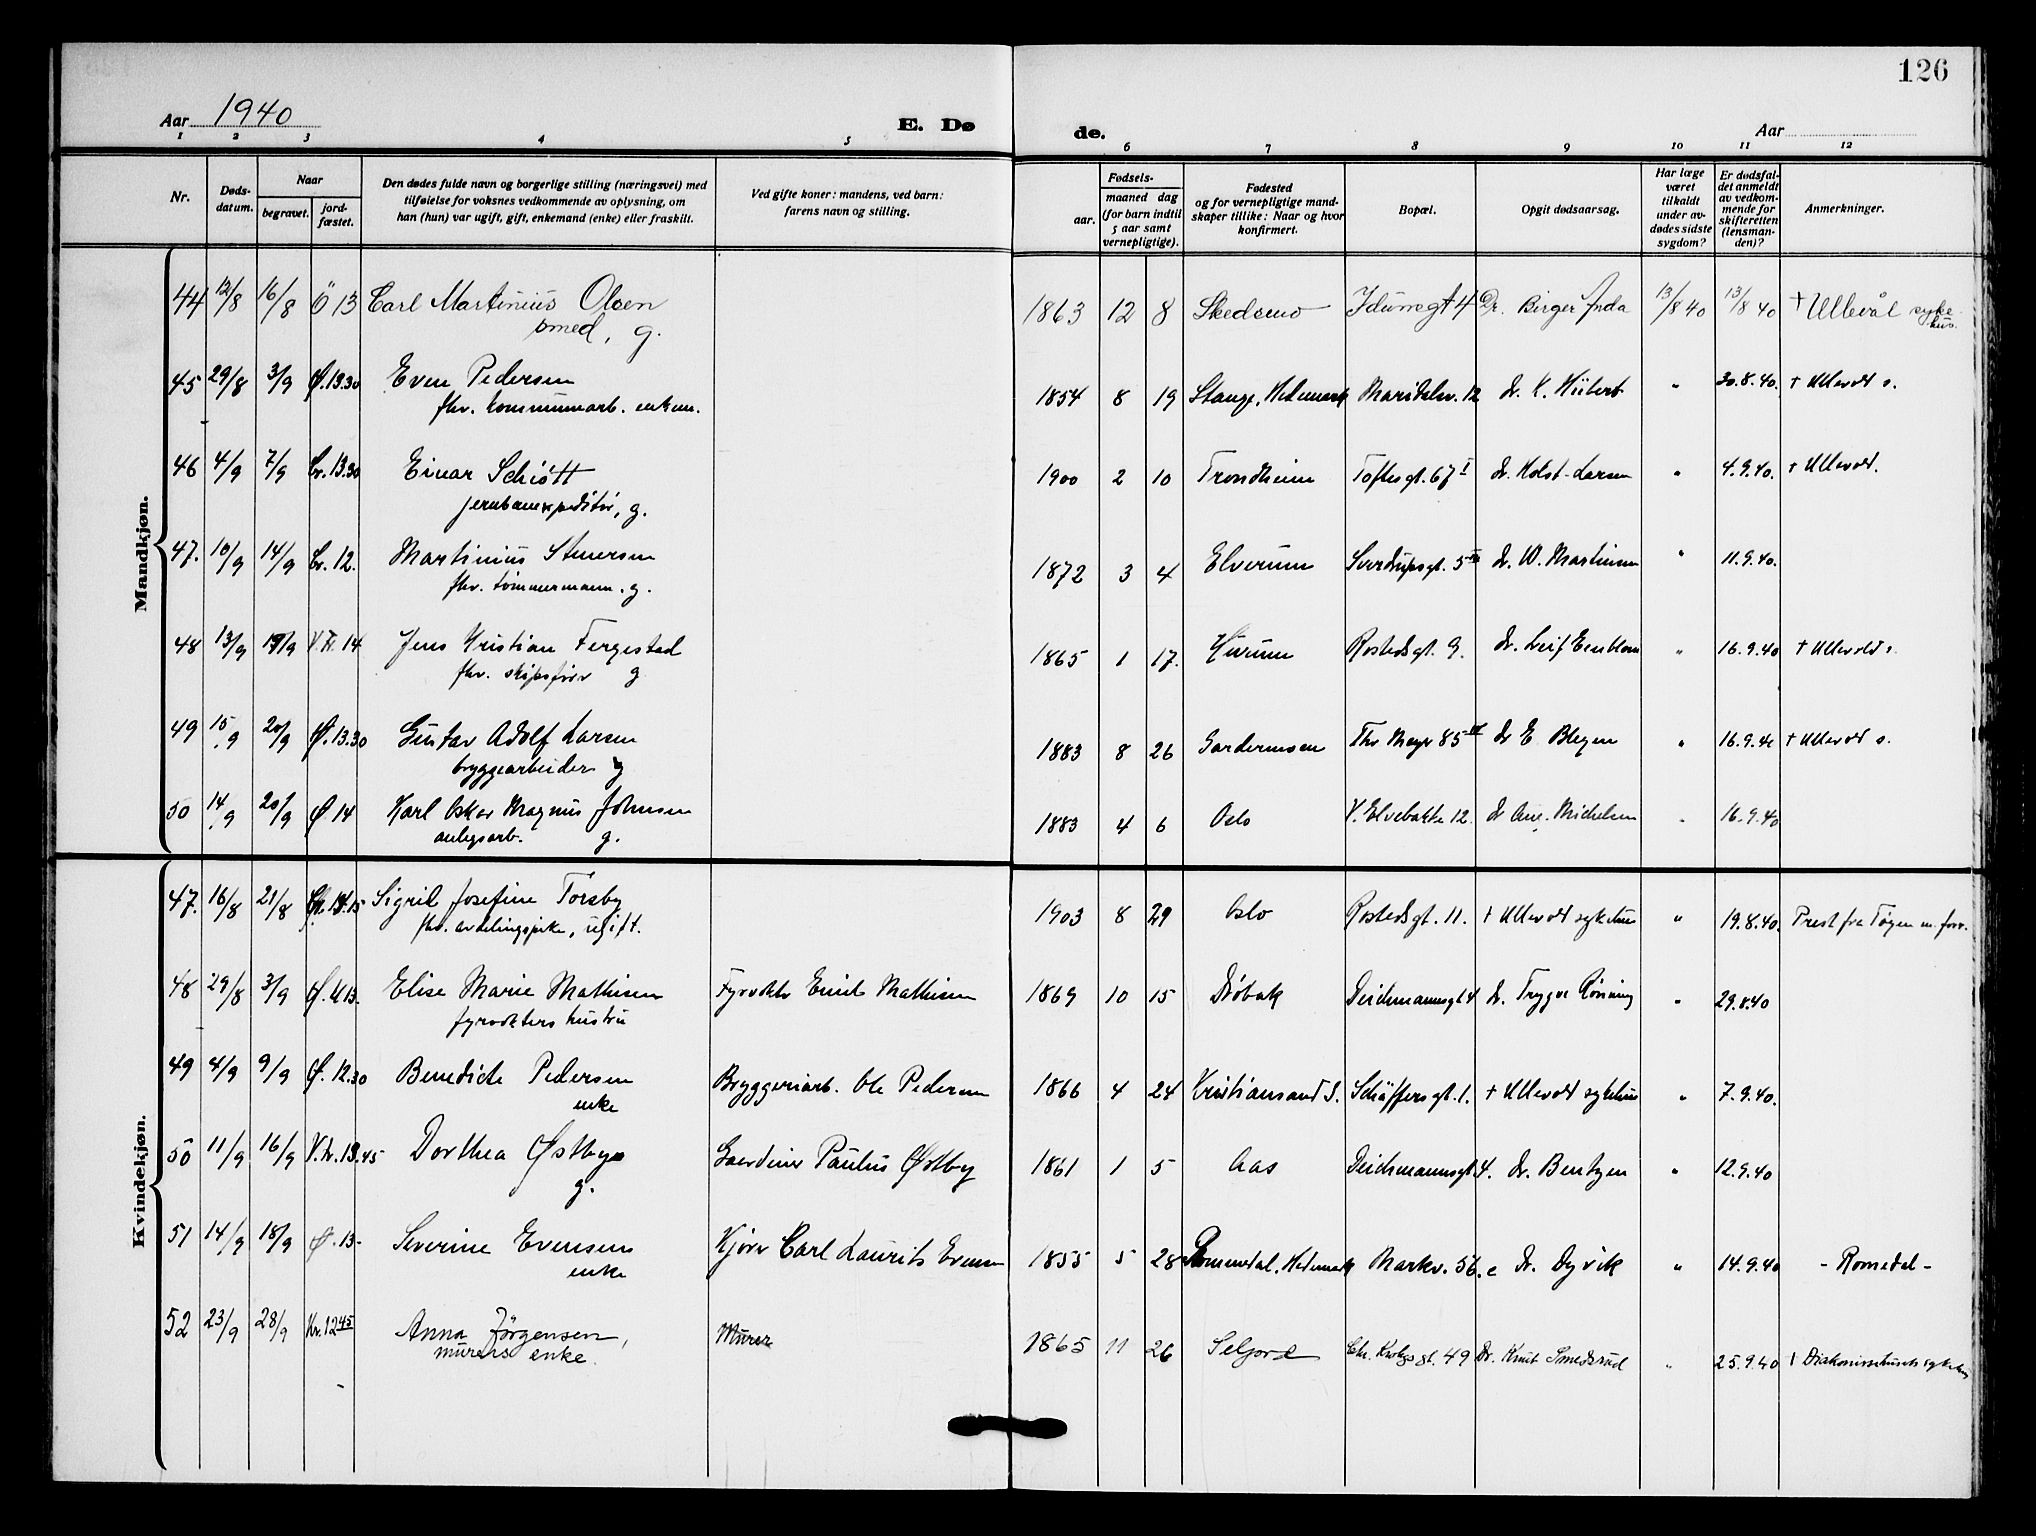 126
Aar 1940
E. Dø de.
Aar
1 2 3 4 5 6 7 8 9 10 11 12
Nr.
Døds-datum.
Naar
begravet.
jord-fæstet.
Den dødes fulde navn og borgerlige stilling (næringsvei) med
tilføielse for voksnes vedkommende av oplysning, om
han (hun) var ugift, gift, enkemand (enke) eller fraskilt.
Ved gifte koner: mandens, ved barn:
farens navn og stilling.
Fødsels-
aar.
maaned dag
(for barn indtil
5 aar samt
vernepligtige).
Fødested
og for vernepligtige mand-
skaper tillike: Naar og hvor
konfirmert.
Bopæl.
Opgit dødsaarsag.
Har læge
været
tilkaldt
under av-
dødes sidste
sygdom?
Er dødsfal-
det anmeldt
av vedkom-
mende for
skifteretten
(lensman-
den)?
Anmerkninger.
Mandkjøn.
44 12/8 16/8 Ö 13 Carl Martinius Olsen 1863 12 8 Skedsmo Idunsgt 4 Dr. Birger 13/8 40 13/8 40 † Ullevål syke-
smed, g. hus.
45 29/8 3/9 Ø. 13.30 Even Pedersen 1854 8 19 Stange, Hedemark Maridalsv. 12 Dr. K. Hiibert " 30.8.40. † Ullevål s.
fhv. kommunearb. enkem.
46 4/9 7/9 Cr. 13.30 Einar Schiött 1900 2 10 Trondheim Toftesgt. 67 I Dr. Holst-Larsen " 4.9.40. † Ullevål.
jernbaneexpeditör, g.
47. 10/9 14/9 Cr. 12. Martinius Stenersen 1872 3 4 Elverum Sverdrupsgt. 5 Dr. W. Martinsen " 11.9.40.
fhv. tömmermann. g.
48 13/9 19/9 V. Kr. 14 Jens Kristian Fergestad 1865 1 17. Hurum Rostedsgt. 9. Dr. Leif " 16.9.40 † Ullevål s.
fhv. skipsförer g
49 15/9 20/9 Ø. 13.30 Gustav Adolf Larsen 1883 8 26 Gardermoen Thv Meyer 85 Dr E Blegen " 16.9.40 † Ullevål s.
bryggearbeider g
50 14/9 20/9 Ø 14 Karl Oskar Magnus Johnsen 1883 4 6 Oslo V. Elvebakke 12. Dr Michelsen " 16.9.40
anlegsarb. g.
Kvindekjøn.
47. 16/8 21/8 Sigrid Josefine Torsby 1903 8 29 Oslo Rostedsgt. 11. † Ullevål sykehus " 19.8.40. Prest fra Tøyen m. forr.
fhv. avdelingspike, ugift.
48 29/8 3/9 Ø. 13. Elise Marie Mathisen Fyrvokter Emil Mathisen 1869 10 15 Dröbak Deichmannsgt 4 Dr. Trygve Rönning " 29.8.40
fyrvokters hustru
49 4/9 9/9 Ø. 12.30 Benedicte Pedersen Bryggeriarb. Ole Pedersen 1866 4 24 Kristiansand S. Schäffersgt. 1. † Ullevål sykehus " 7.9.40.
enke
50 11/9 16/9 V. Kr. 13.45 Dorthea Østbye Gaardeier Paulus Østby 1861 1 5 Aas Deichmannsgt 4. Dr. Bentzen " 12.9.40
g.
51 14/9 18/9 Ø. 13- Severine Evensen Kjörer Carl Laurits Evensen 1855 5 28 Romedal, Hedemark Markv. 56. c Dr. Dyvik " 14.9.40 - Romedal -
enke
52 23/9 28/9 Kr. 12 45 Anna Jörgensen, Murer 1865 11 26 Seljord Chr. Krohgs gt. 49 Dr. Knut Smedsrud " 25.9.40 † Diakonissehusets sykehus
murers enke.